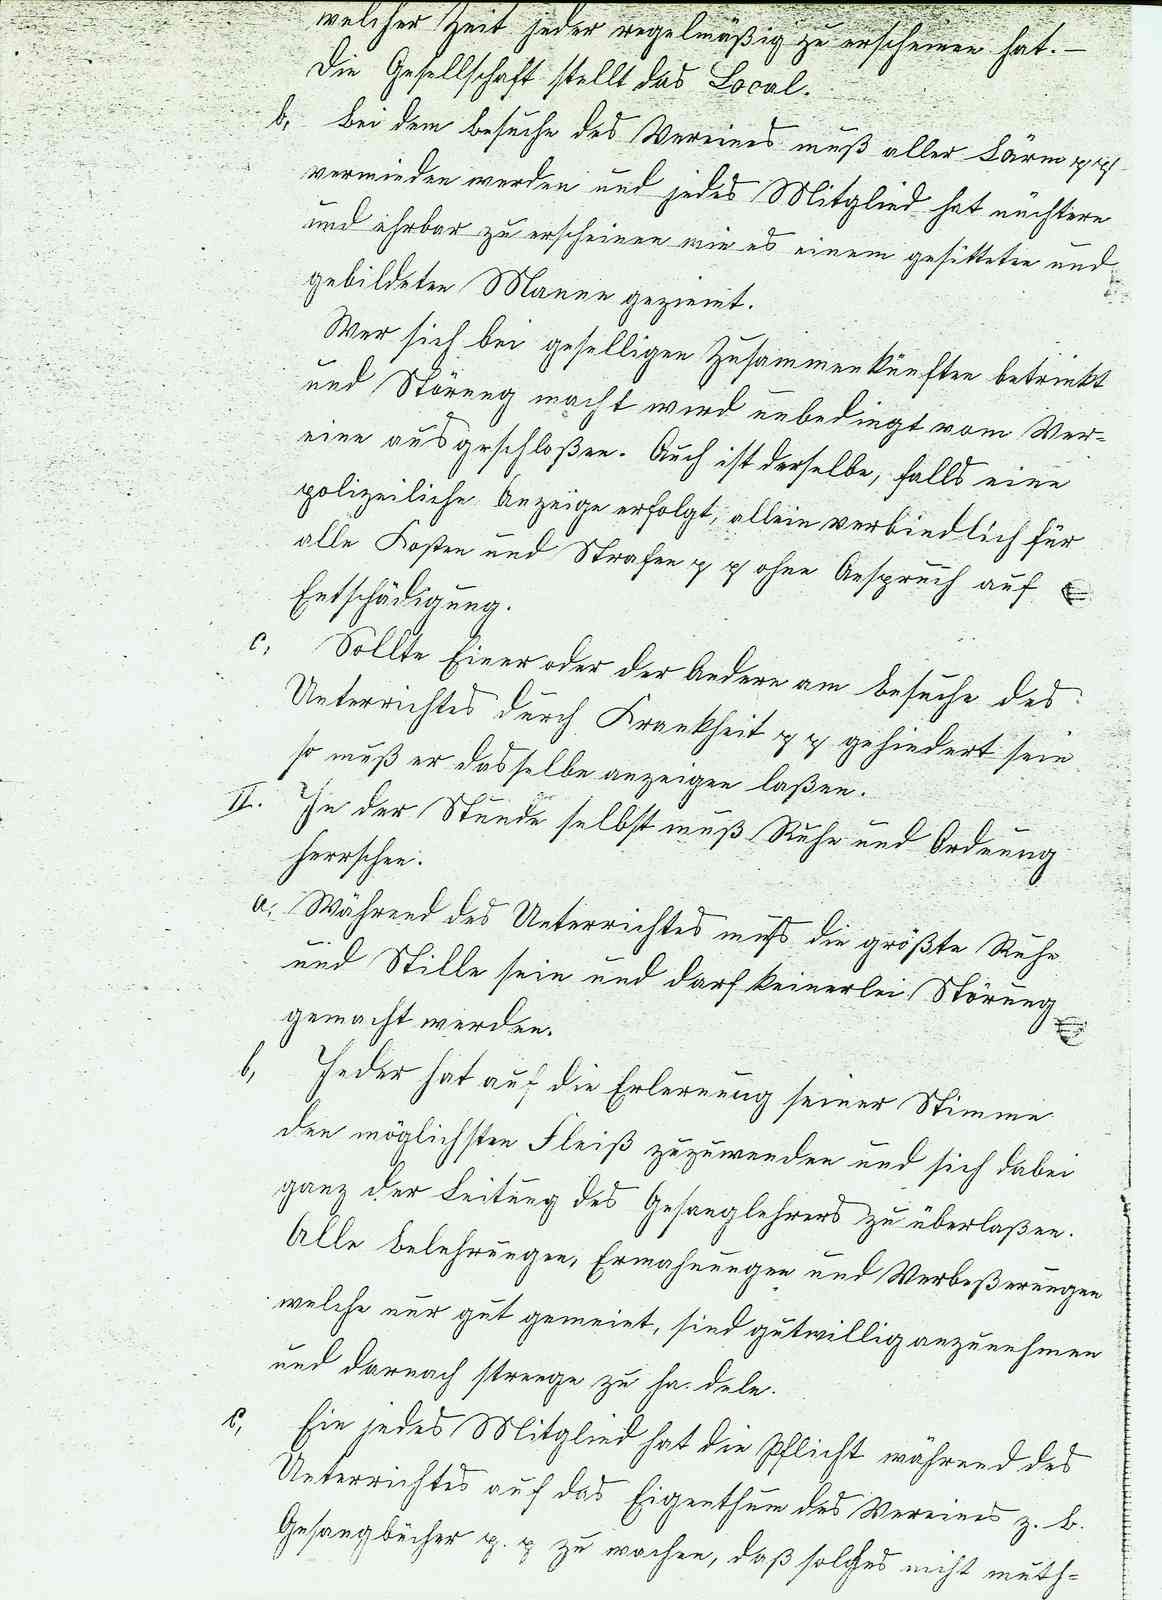 welcher Zeit jeder regelmäßig zu erscheinen hat. –
Die Gesellschaft stellt das Local.
b, Bei dem Besuche des Vereines muß aller Lärm pp
vermieden werden und jedes Mitglied hat nüchtern
und ehrbar zu erscheinen wie es einem gesitteten und
gebildeten Manne geziemt.
Wer sich bei geselligen Zusammenkünften betrinkt
und Störung macht wird unbedingt vom Ver=
eine ausgeschloßen. Auch ist derselbe, falls eine
polizeiliche Anzeige erfolgt, allein verbindlich für
alle Kosten und Strafen p p ohne Anspruch auf
Entschädigung.
c, Sollte Einer oder der Andere am Besuche des
Unterrichtes durch Krankheit p p gehindert sein
so muß er dasselbe anzeigen laßen.
II. In der Stunde selbst muß Ruhe und Ordnung
herrschen.
a, Während des Unterrichtes muß die größte Ruhe
und Stille sein und darf keinerlei Störung
gemacht werden.
b, Jeder hat auf die Erlernung seiner Stimme
den möglichsten Fleiß zuzuwenden und sich dabei
ganz der Leitung des Gesanglehrers zu überlaßen.
Alle Belehrungen, Ermahnungen und Verbeßerungen
welche nur gut gemeint, sind gutwillig anzunehmen
und darnach strenge zu ha deln.
c, Ein jedes Mitglied hat die Pflicht während des
Unterrichtes auf das Eigenthum des Vereines z. B.
Gesangbücher p. p zu wachen, daß solches nicht muth=